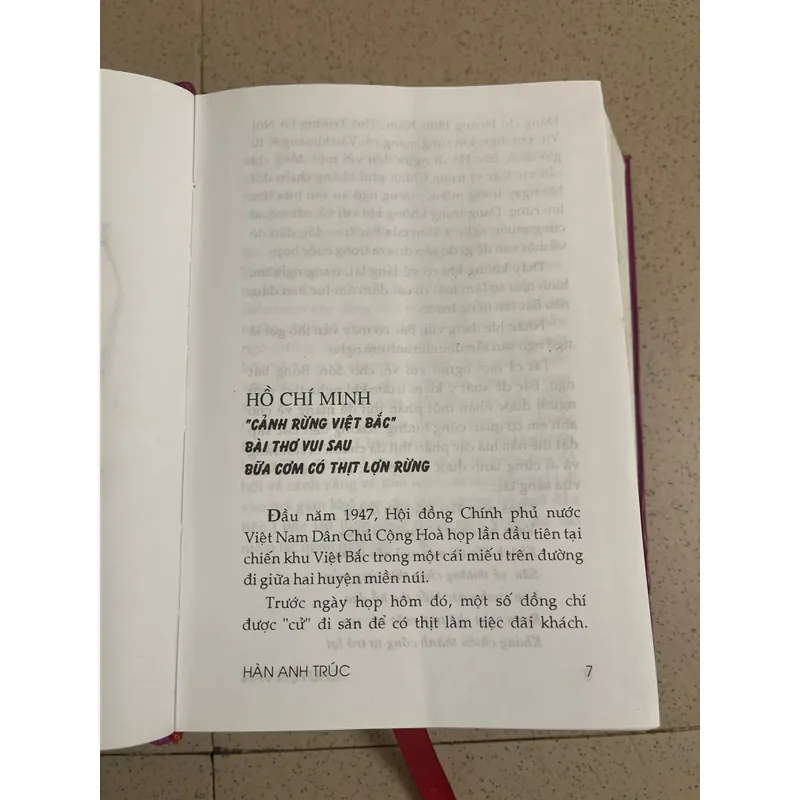 HỒ CHÍ MINH
"CẢNH RỪNG VIỆT BẮC"
BÀI THƠ VUI SAU
BỮA CƠM CÓ THỊT LỢN RỪNG
Đầu năm 1947, Hội đồng Chính phủ nước
Việt Nam Dân Chủ Cộng Hoà họp lần đầu tiên tại
chiến khu Việt Bắc trong một cái miếu trên đường
đi giữa hai huyện miền núi.
Trước ngày họp hôm đó, một số đồng chí
được "cử" đi săn để có thịt làm tiệc đãi khách.
HÀN ANH TRÚC
7